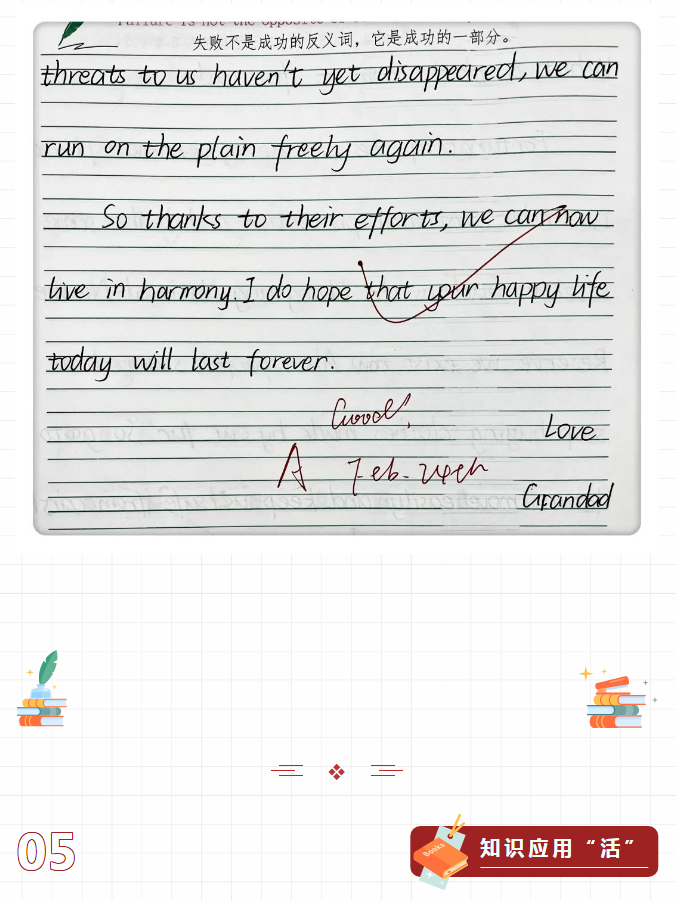 失败不是成功的反义词，它是成功的一部分。
threats to us haven't yet disappeared, we can
run on the plain freely again.
So thanks to their efforts, we can now
live in harmony. I do hope that your happy life
today will last forever.
Good!
Love
A Feb. 24th
Grandad
05
Books
知识应用“活”